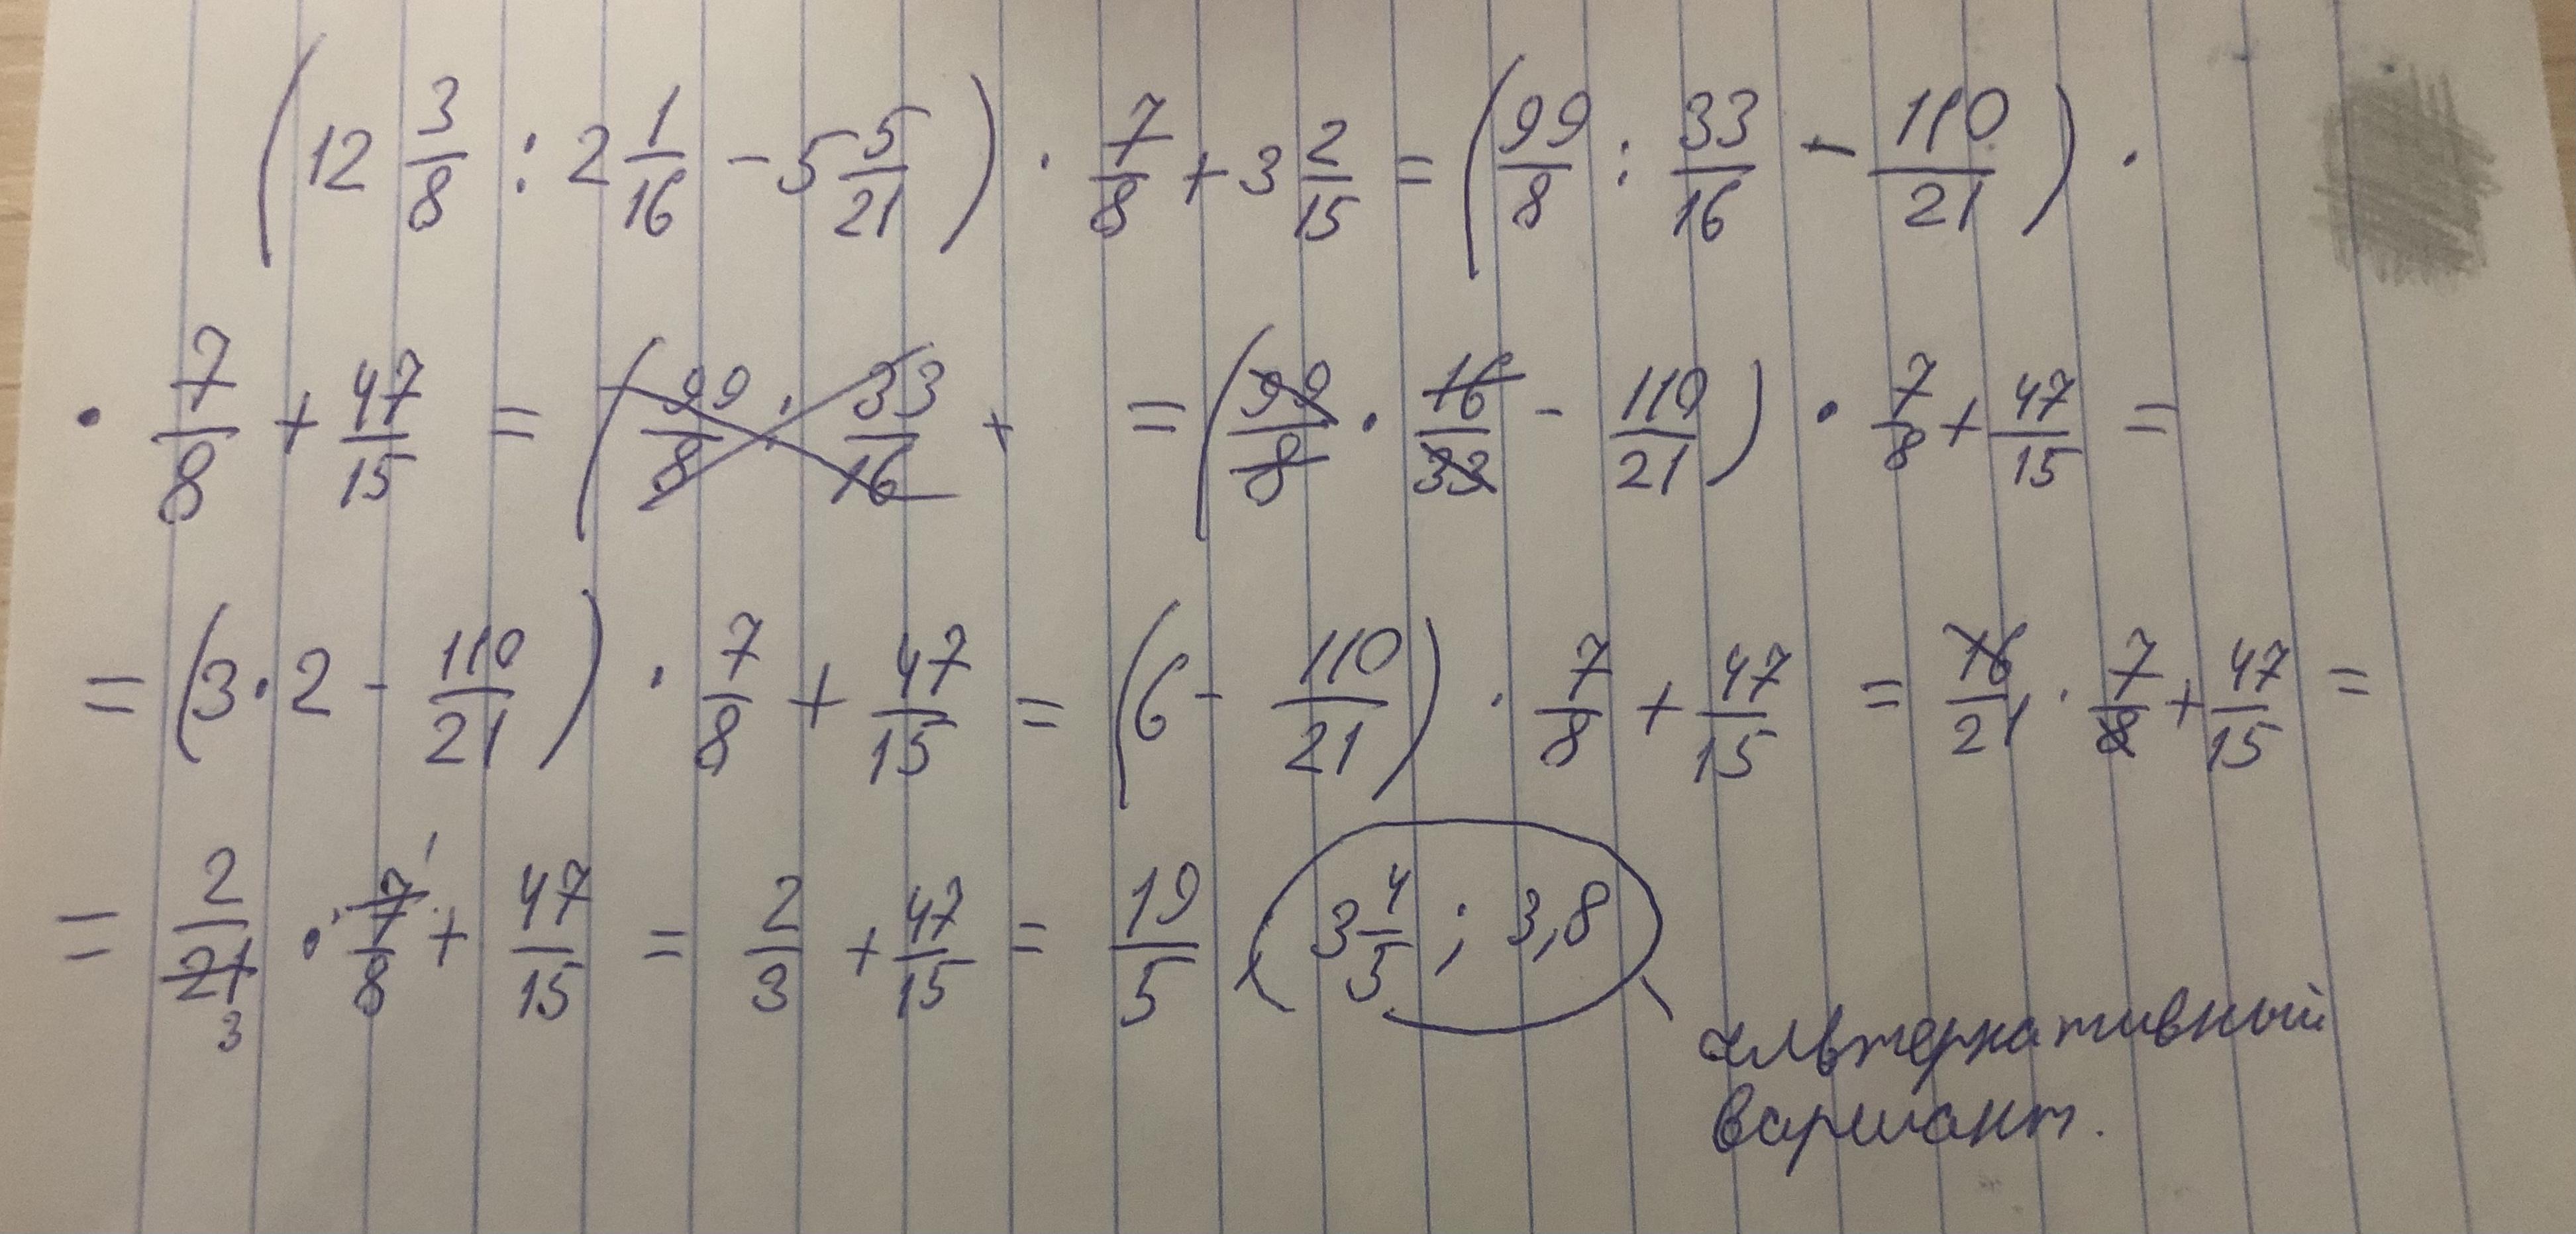 (12 3/8 : 2 1/16 - 5 5/21) · 7/8 + 3 2/15 = (99/8 : 33/16 - 110/21) ·
· 7/8 + 47/15 = (99/8 : 33/16 + = (99/8 · 16/33 - 110/21) · 7/8 + 47/15 =
= (3 · 2 - 110/21) · 7/8 + 47/15 = (6 - 110/21) · 7/8 + 47/15 = 16/21 · 7/8 + 47/15 =
= 2/21 3 · 7/8 1 + 47/15 = 2/3 + 47/15 = 19/5 (3 4/5 ; 3,8)
альтернативный
вариант.